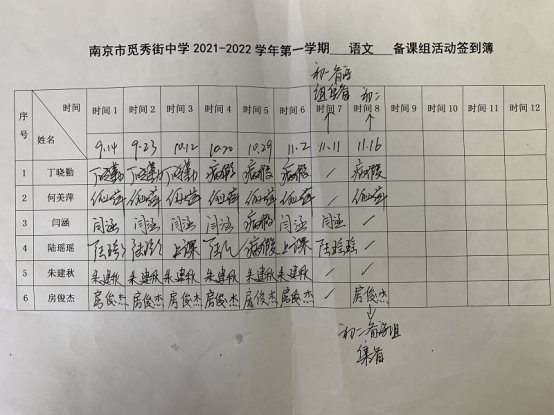 南京市觅秀街中学 2021-2022 学年第一学期 语文 备课组活动签到簿
初二 初二
序号 时间 姓名 时间 1 时间 2 时间 3 时间 4 时间 5 时间 6 时间 7 时间 8 时间 9 时间 10 时间 11 时间 12
9.14 9.23 10.12 10.20 10.29 11.2 11.11 11.16
1 丁晓勤 丁晓勤 丁晓勤 丁晓勤 病假 病假 病假 / 病假
2 何美萍 何美萍 何美萍 何美萍 何美萍 何美萍 何美萍 / 何美萍
3 闫涵 闫涵 闫涵 闫涵 闫涵 病假 闫涵 闫涵 /
4 陆瑶瑶 陆瑶瑶 陆瑶瑶 上课 病假 上课 陆瑶瑶 /
5 朱建秋 朱建秋 朱建秋 朱建秋 朱建秋 朱建秋 朱建秋 / /
6 房俊杰 房俊杰 房俊杰 房俊杰 房俊杰 房俊杰 房俊杰 / 房俊杰
初二
集备